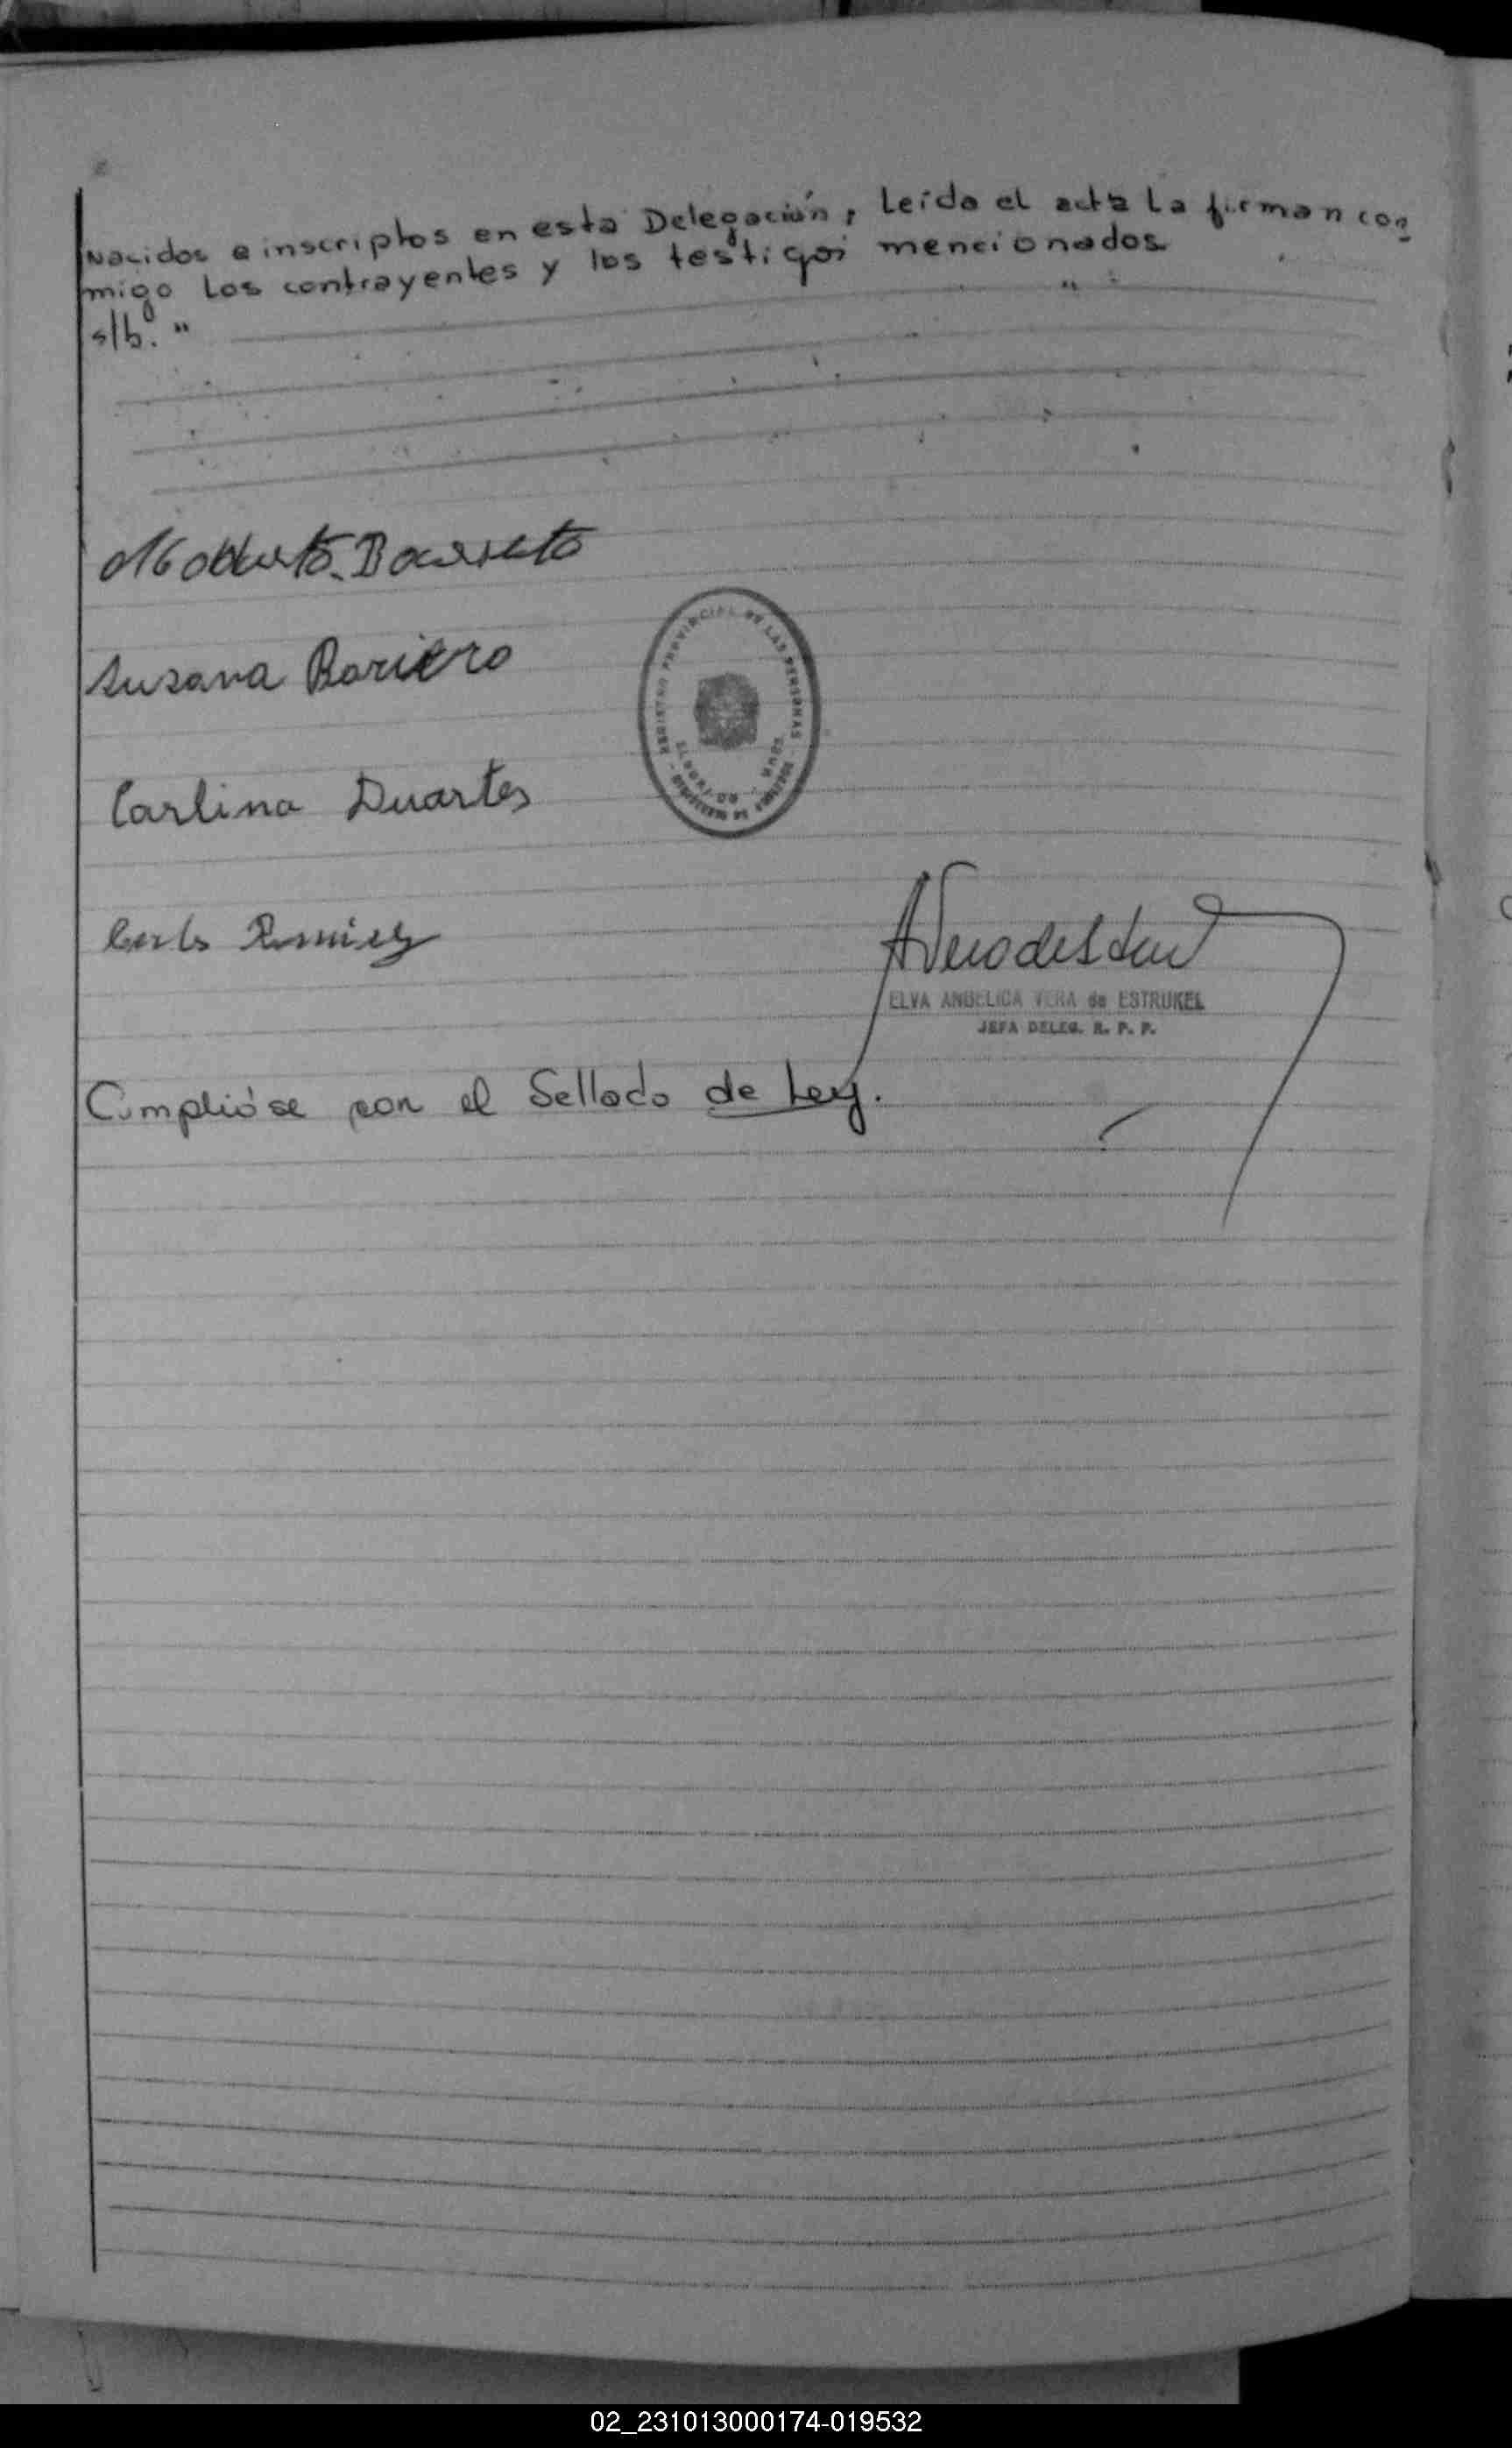 Nacidos e inscriptos en esta Delegación, Leída el acta la firman con
migo los contrayentes y los testigos mencionados
s/b. "
Barreto
Susana Bariero
Carlina Duartes
REGISTRO PROVINCIAL DE LAS PERSONAS
Carlos Ramirez
ELVA ANGELICA VERA de ESTRUKEL
JEFA DELEG. R. P. P.
Cumplióse con el Sellado de Ley.
02_231013000174-019532